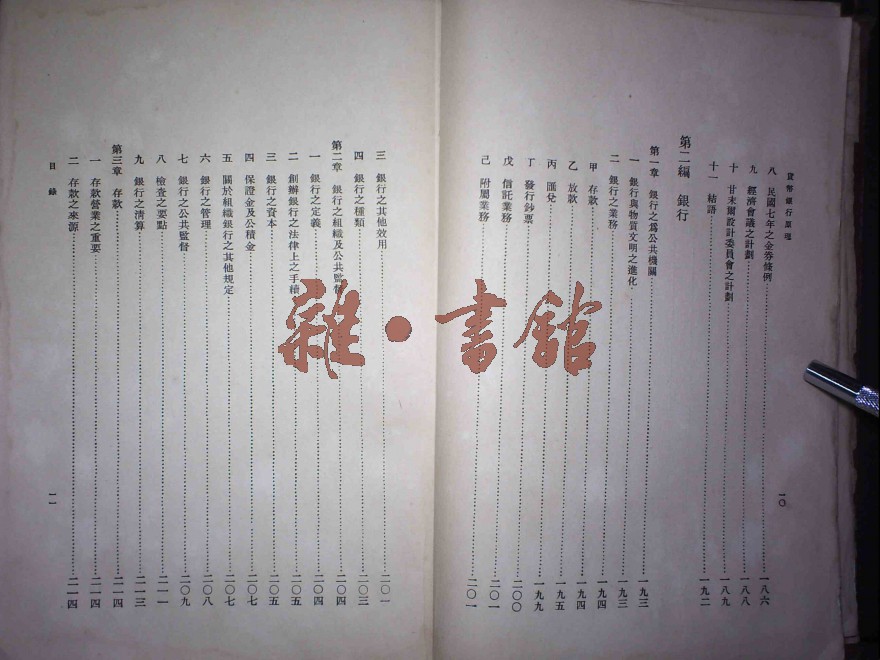 貨幣銀行原理
八 民國七年之金券條例 一八六
九 經濟會議之計劃 一八八
十 甘末爾設計委員會之計劃 一八九
十一 結語 一九二
第二編 銀行
第一章 銀行之爲公共機關 一九三
一 銀行與物質文明之進化 一九三
二 銀行之業務 一九四
甲 存款 一九四
乙 放款 一九五
丙 匯兌 一九五
丁 發行鈔票 一九九
戊 信託業務 二〇〇
己 附屬業務 二〇一
一〇
三 銀行之其他效用 二〇一
四 銀行之種類 二〇三
第二章 銀行之組織及公共監督 二〇四
一 銀行之定義 二〇四
二 創辦銀行之法律上之手續 二〇五
三 銀行之資本 二〇五
四 保證金及公積金 二〇七
五 關於組織銀行之其他規定 二〇七
六 銀行之管理 二〇八
七 銀行之公共監督 二〇九
八 檢查之要點 二一一
九 銀行之清算 二一三
第三章 存款 二一四
一 存款營業之重要 二一四
二 存款之來源 二一四
目錄
一一
雜·書館